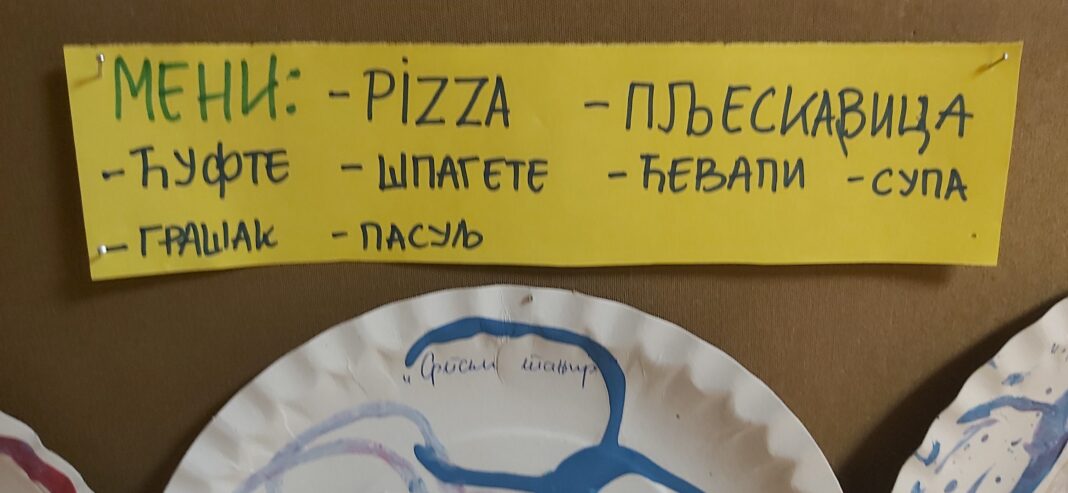 МЕНИ: - PiZZA - ПЉЕСКАВИЦА
- ЋУФТЕ - ШПАГЕТЕ - ЋЕВАПИ - СУПА
- ГРАШАК - ПАСУЉ
„Српски тањир